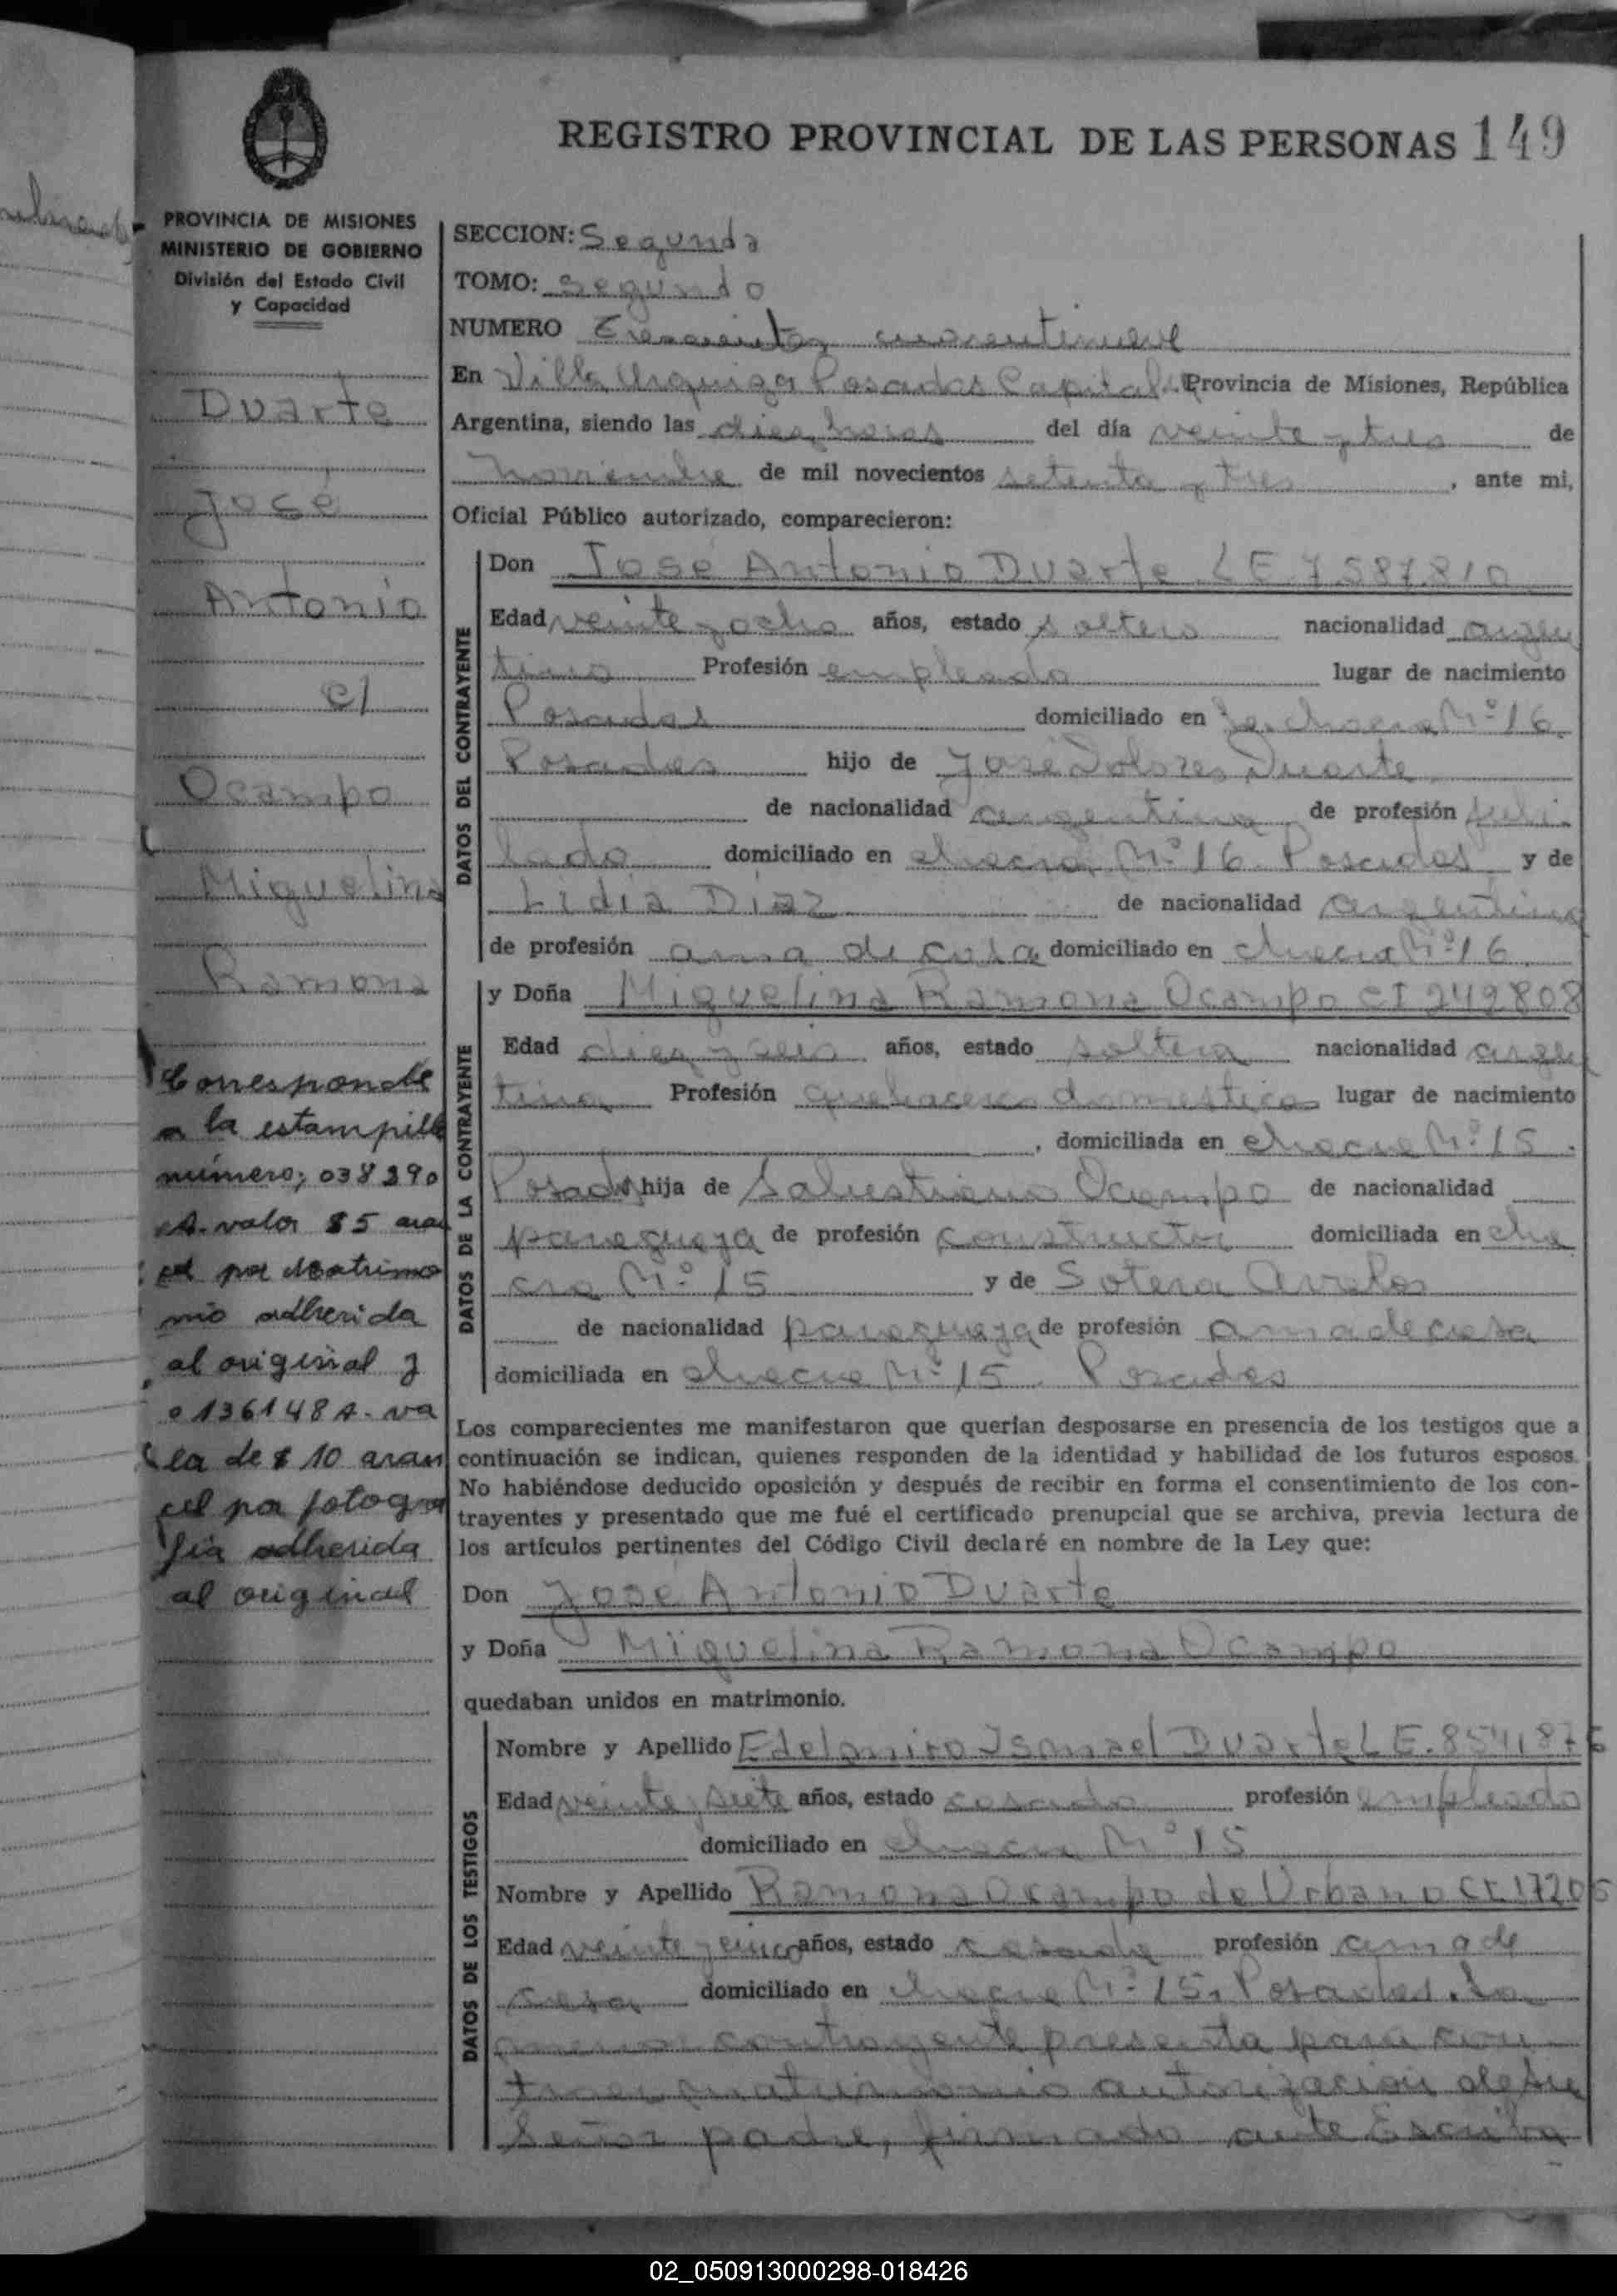 REGISTRO PROVINCIAL DE LAS PERSONAS 149
PROVINCIA DE MISIONES
MINISTERIO DE GOBIERNO
División del Estado Civil
y Capacidad
Duarte
José
Antonio
c/
Ocampo
Miguelina
Ramona
Corresponde
a la estampilla
número; 038290
A. valor $5 aran
cel por Matrimo
nio adherida
al original y
0136148 A. va
lor de $ 10 aran
cel por fotogra
fia adherida
al original
SECCION: Segunda
TOMO: Segundo
NUMERO Trescientos cuarentinueve
En Villa Urquiza Posadas Capital Provincia de Misiones, República
Argentina, siendo las diez horas del día veinte y tres de
noviembre de mil novecientos setenta y tres, ante mi,
Oficial Público autorizado, comparecieron:
DATOS DEL CONTRAYENTE
Don José Antonio Duarte LE 7.587.810
Edad veinte y ocho años, estado soltero nacionalidad argen
tino Profesión empleado lugar de nacimiento
Posadas domiciliado en chacra Nº 16
Posadas hijo de José Dolores Duarte
de nacionalidad argentina de profesión jubi
lado domiciliado en chacra Nº 16 Posadas y de
Lidia Diaz de nacionalidad argentina
de profesión ama de casa domiciliado en chacra Nº 16
DATOS DE LA CONTRAYENTE
y Doña Miguelina Ramona Ocampo CI 249808
Edad diez y seis años, estado soltera nacionalidad argen
tina Profesión quehaceres domesticos lugar de nacimiento
, domiciliada en chacra Nº 15.
Posadas hija de Salustiano Ocampo de nacionalidad
paraguaya de profesión constructor domiciliada en cha
cra Nº 15 y de Sotera Avalos
de nacionalidad paraguaya de profesión ama de casa
domiciliada en chacra Nº 15. Posadas
Los comparecientes me manifestaron que querían desposarse en presencia de los testigos que a
continuación se indican, quienes responden de la identidad y habilidad de los futuros esposos.
No habiéndose deducido oposición y después de recibir en forma el consentimiento de los con-
trayentes y presentado que me fué el certificado prenupcial que se archiva, previa lectura de
los artículos pertinentes del Código Civil declaré en nombre de la Ley que:
Don José Antonio Duarte
y Doña Miguelina Ramona Ocampo
quedaban unidos en matrimonio.
DATOS DE LOS TESTIGOS
Nombre y Apellido Edelmiro Ismael Duarte LE. 8541876
Edad veinte y siete años, estado casado profesión empleado
domiciliado en chacra Nº 15
Nombre y Apellido Ramona Ocampo de Urbano CI. 17205
Edad veinte y cinco años, estado casada profesión ama de
casa domiciliado en chacra Nº 15. Posadas. La
menor contrayente presenta para con
traer matrimonio autorización de su
Señor padre, firmado ante Escriba
02_050913000298-018426